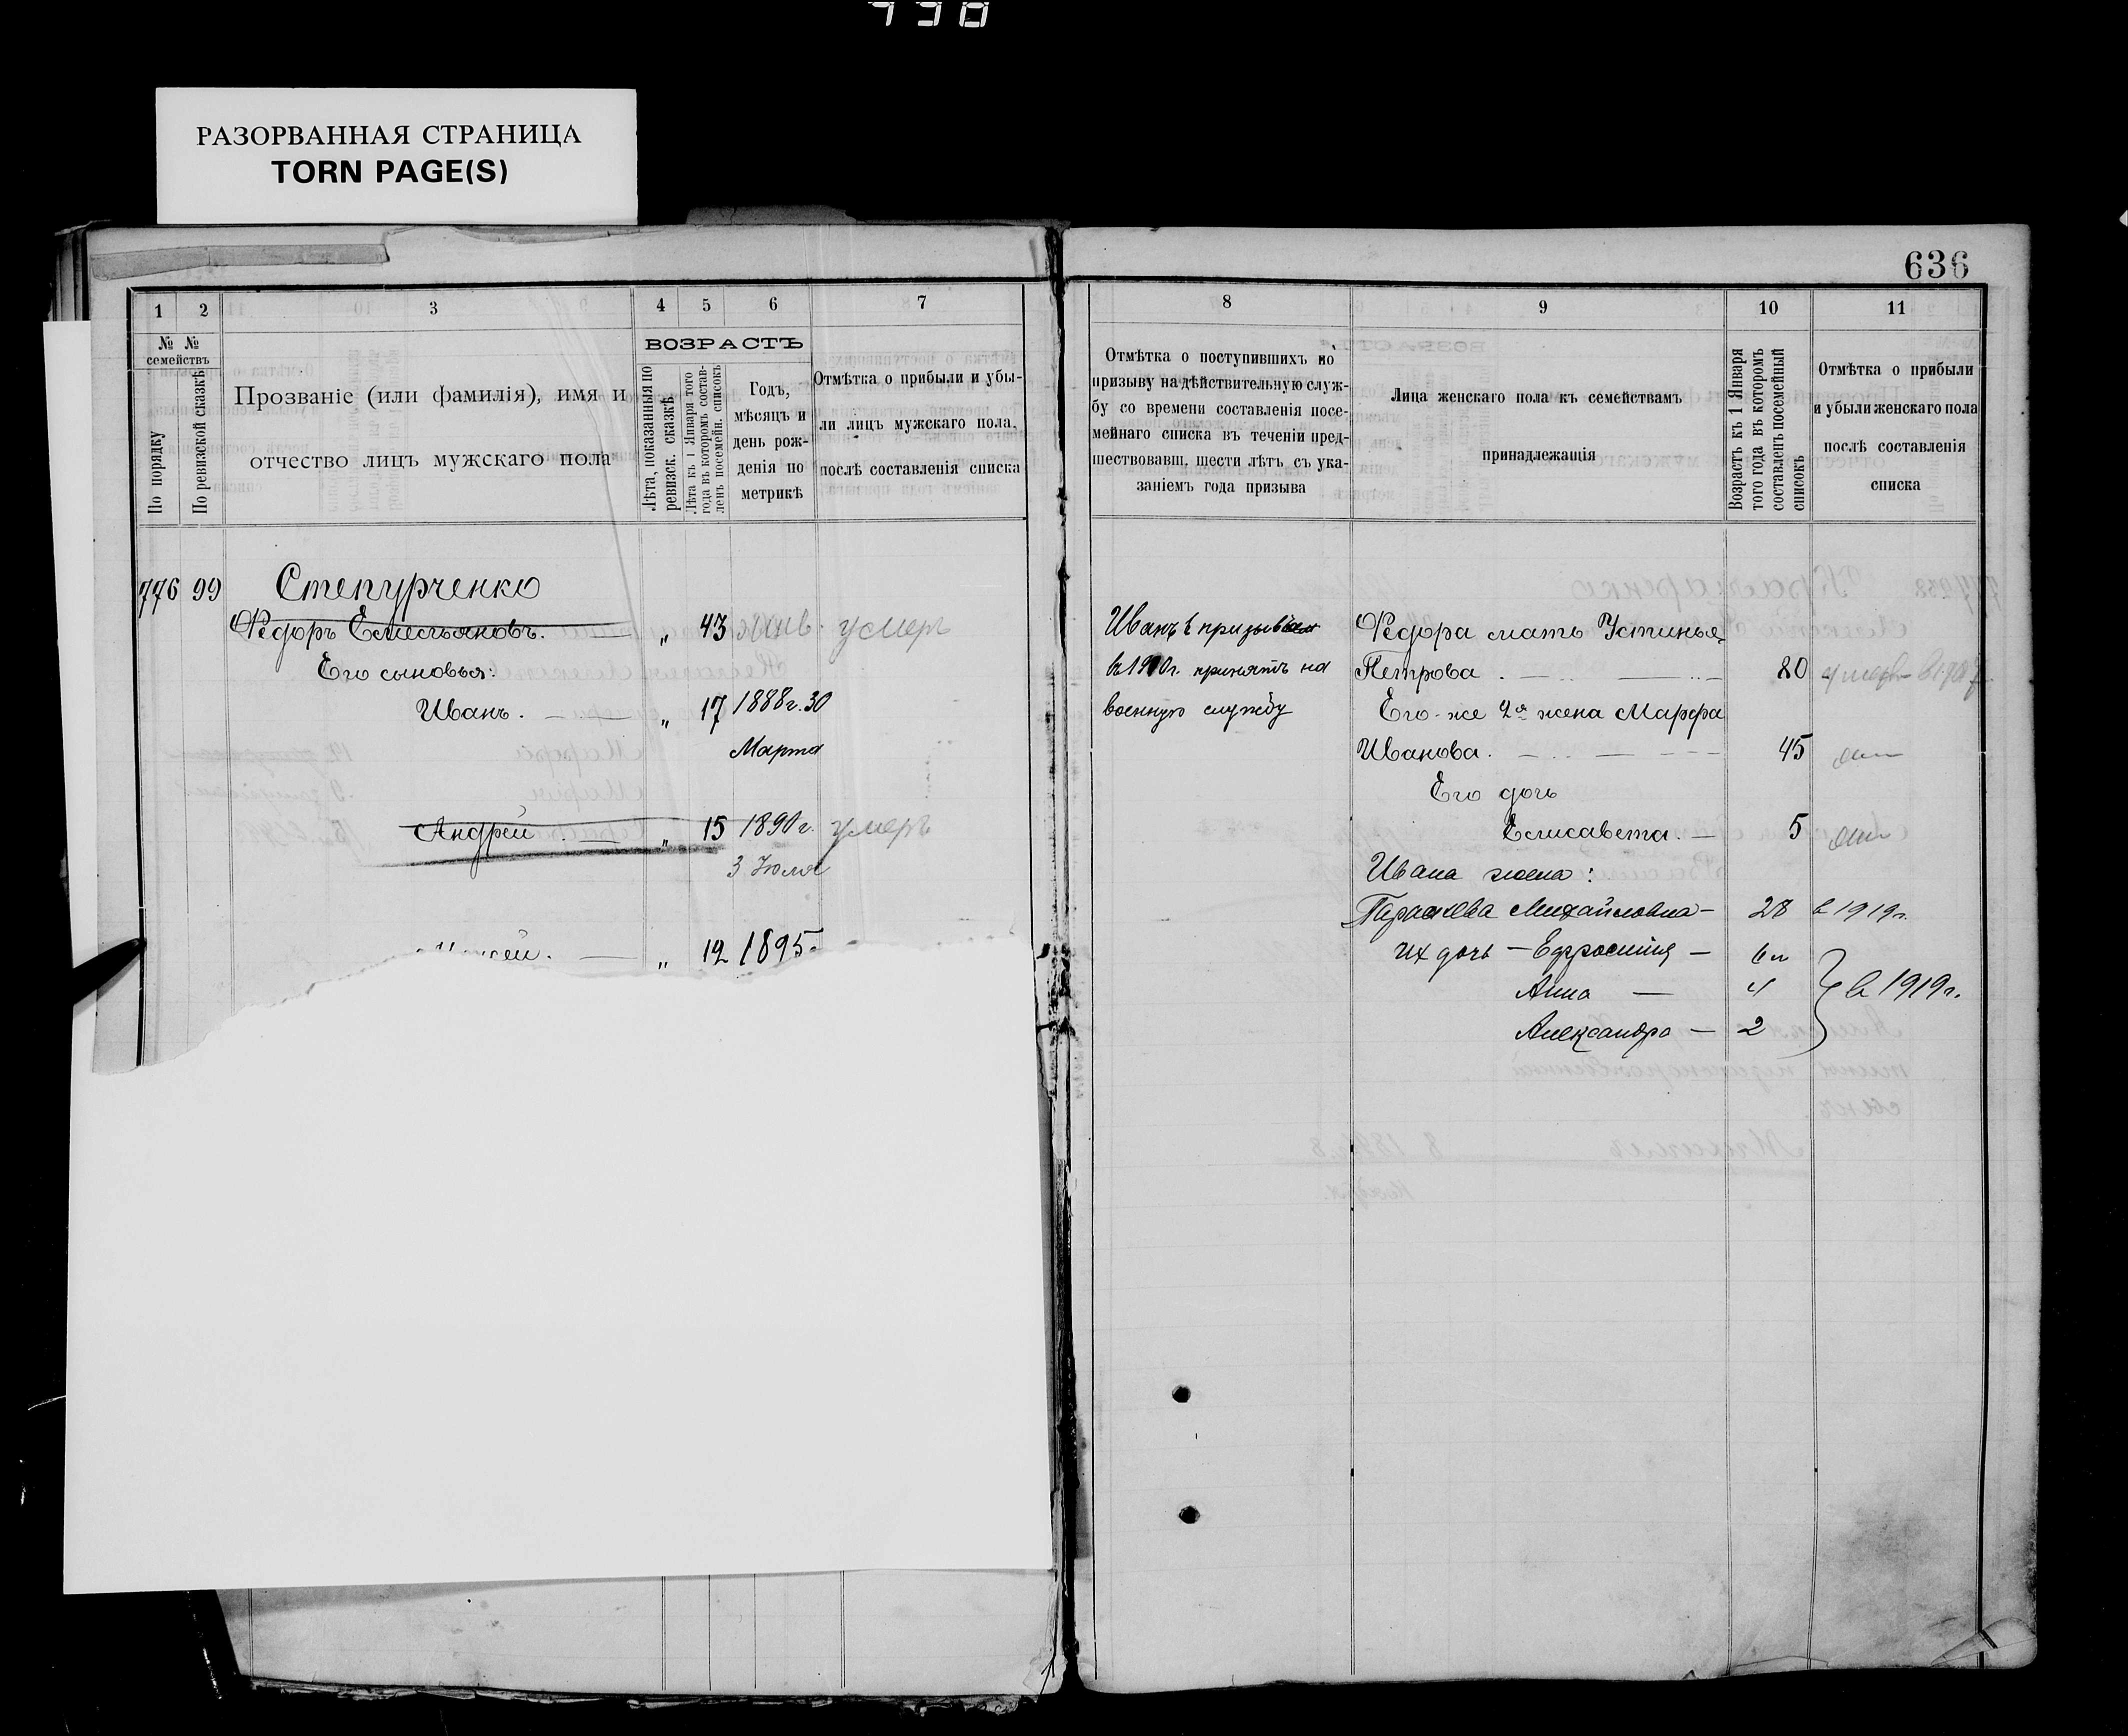 738
РАЗОРВАННАЯ СТРАНИЦА
TORN PAGE(S)
1 2 3 4 5 6 7
№ № семействъ
По порядку
По ревизской сказкѣ
Прозваніе (или фамилія), имя и
отчество лицъ мужскаго пола
ВОЗРАСТЪ
Лѣта, показанныя по
ревизск. сказкѣ
Лѣта къ 1 Января того
года въ которомъ состав-
ленъ посемейн. списокъ
Годъ,
мѣсяцъ и
день рож-
денія по
метрикѣ
Отмѣтка о прибыли и убы-
ли лицъ мужскаго пола,
послѣ составленія списка
776 99 Степурченко
Ѳедоръ Емельяновъ. „ 43 умеръ
Его сыновья:
Иванъ. „ 17 1888г. 30
Марта
Андрей „ 15 1890г. умеръ
3 Іюля
„ 12 1895
636
8 9 10 11
Отмѣтка о поступившихъ по
призыву на дѣйствительную служ-
бу со времени составленія посе-
мейнаго списка въ теченіи пред-
шествовавш. шести лѣтъ съ ука-
заніемъ года призыва
Лица женскаго пола къ семействамъ
принадлежащія
Возрастъ къ 1 Января
того года въ которомъ
составленъ посемейный
списокъ
Отмѣтка о прибыли
и убыли женскаго пола
послѣ составленія
списка
Иванъ
въ 1910г. принятъ на
военную службу
Ѳедора мать Устинья
Петрова 80
Его-же 2я жена Марфа
Иванова. 45
Его дочь
Елисавета. — 5
Ивана жена:
Параскева Михайловна — 28 в 1919г.
их дочь — Ефросинія — 6
Анна — 4 в 1919г.
Александра — 2